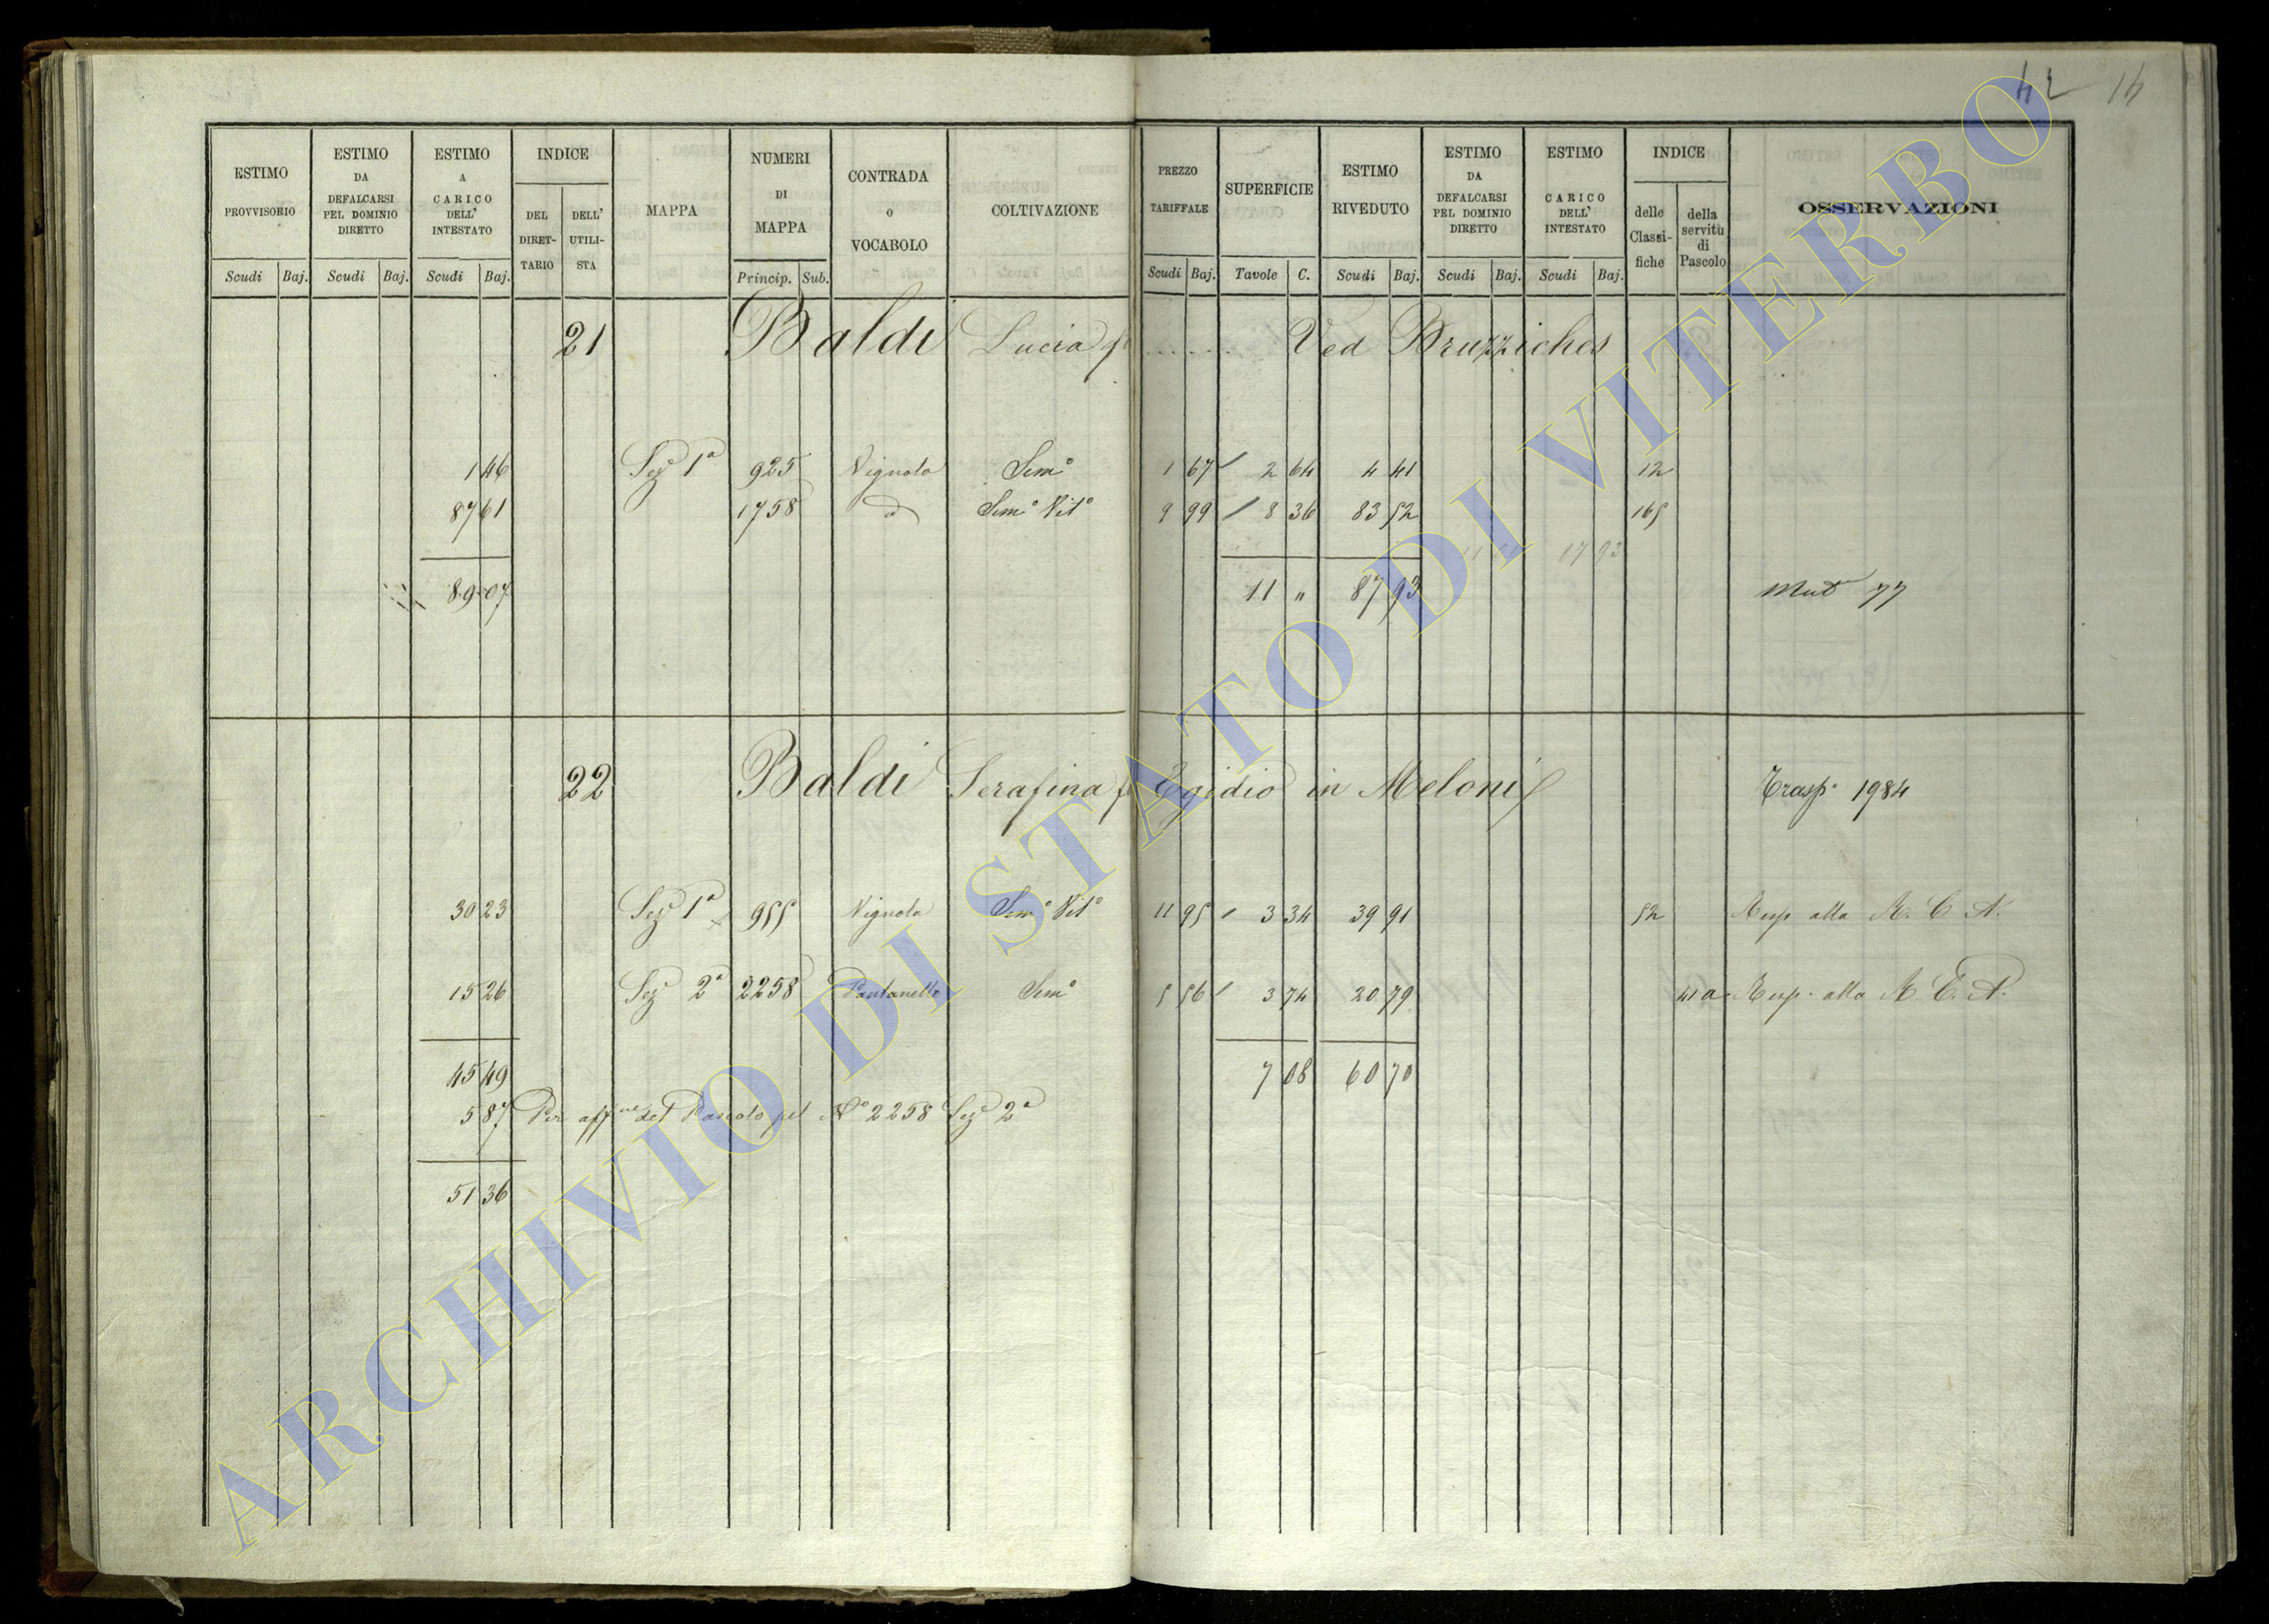 42 14
ESTIMO PROVVISORIO Scudi Baj. ESTIMO DA DEFALCARSI PEL DOMINIO DIRETTO Scudi Baj. ESTIMO A CARICO DELL' INTESTATO Scudi Baj. INDICE DEL DIRET-TARIO DELL' UTILI-STA MAPPA NUMERI DI MAPPA Princip. Sub. CONTRADA O VOCABOLO COLTIVAZIONE PREZZO TARIFFALE Scudi Baj. SUPERFICIE Tavole C. ESTIMO RIVEDUTO Scudi Baj. ESTIMO DA DEFALCARSI PEL DOMINIO DIRETTO Scudi Baj. ESTIMO A CARICO DELL' INTESTATO Scudi Baj. INDICE delle Classi-fiche della servitù di Pascolo OSSERVAZIONI
21 Baldi Lucia f ........ Ved Bruzziches
1 46 Sez 1ª 925 Vignola Semº 1 67 2 64 4 41 12
87 61 1758 d Semº Vitº 9 99 8 36 83 52 165
87 93
89 07 11 " 87 93 Mut 77
22 Baldi Serafina f Egidio in Meloni Trasp. 1984
30 23 Sez 1ª 955 Vignola Semº Vitº 11 95 3 34 39 91 52 alla R. C. A.
15 26 Sez 2ª 2258 Pantanella Semº 5 56 3 74 20 79 41 a alla R. C. A.
45 49 7 08 60 70
5 87 Per aff.ne del Pascolo pel Nº 2258 Sez 2ª
51 36
ARCHIVIO DI STATO DI VITERBO